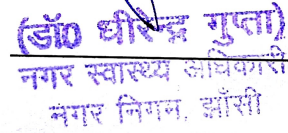 (डॉ0 धीरेन्द्र गुप्ता)
नगर स्वास्थ्य अधिकारी
नगर निगम, झाँसी